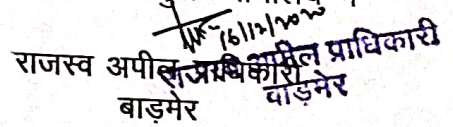 16/12/2020
राजस्व अपील प्राधिकारी
बाड़मेर
अपील प्राधिकारी
बाड़मेर